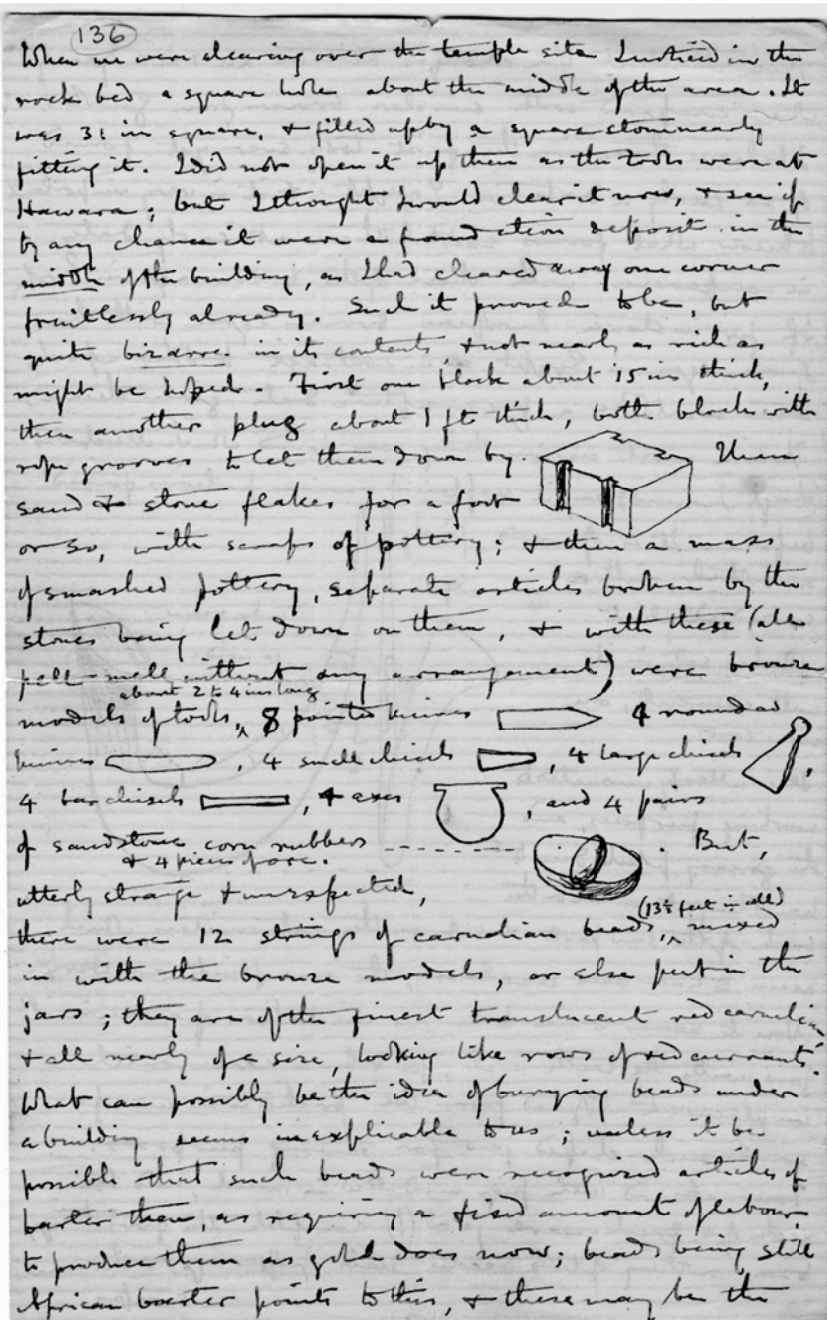 136
When we were clearing over the temple site I noticed in the
rock bed a square hole about the middle of the area. It
was 31 in square, & filled up by a square stone nearly
fitting it. I did not open it up then as the tools were at
Hawara; but I thought I would clear it now, & see if
by any chance it were a foundation deposit in the
middle of the building, as I had cleared away one corner
fruitlessly already. Such it proved to be, but
quite bizarre in its contents & not nearly as rich as
might be hoped. First one block about 15 in thick,
then another plug about 1 ft thick, both blocks with
rope grooves to let them down by. Then
sand & stone flakes for a foot
or so, with scraps of pottery; & then a mass
of smashed pottery, separate articles broken by the
stones being let down on them, & with these (all
pell-mell without any arrangement) were bronze
about 2 to 4 ins long
models of tools, 8 pointed knives 4 rounded
knives , 4 small chisels , 4 large chisels ,
4 bar chisels , 4 axes , and 4 pairs
of sandstone corn rubbers . But,
& 4 pieces of ore.
utterly strange & unexpected,
(13½ feet in all)
there were 12 strings of carnelian beads, mixed
in with the bronze models, or else put in the
jars; they are of the finest translucent red carnelian
& all nearly of a size, looking like rows of red currants.
What can possibly be the idea of burying beads under
a building seems inexplicable to us; unless it be
possible that such beads were recognised articles of
barter then, as requiring a fixed amount of labour
to produce them as gold does now; beads being still
African barter points to this, & these may be the